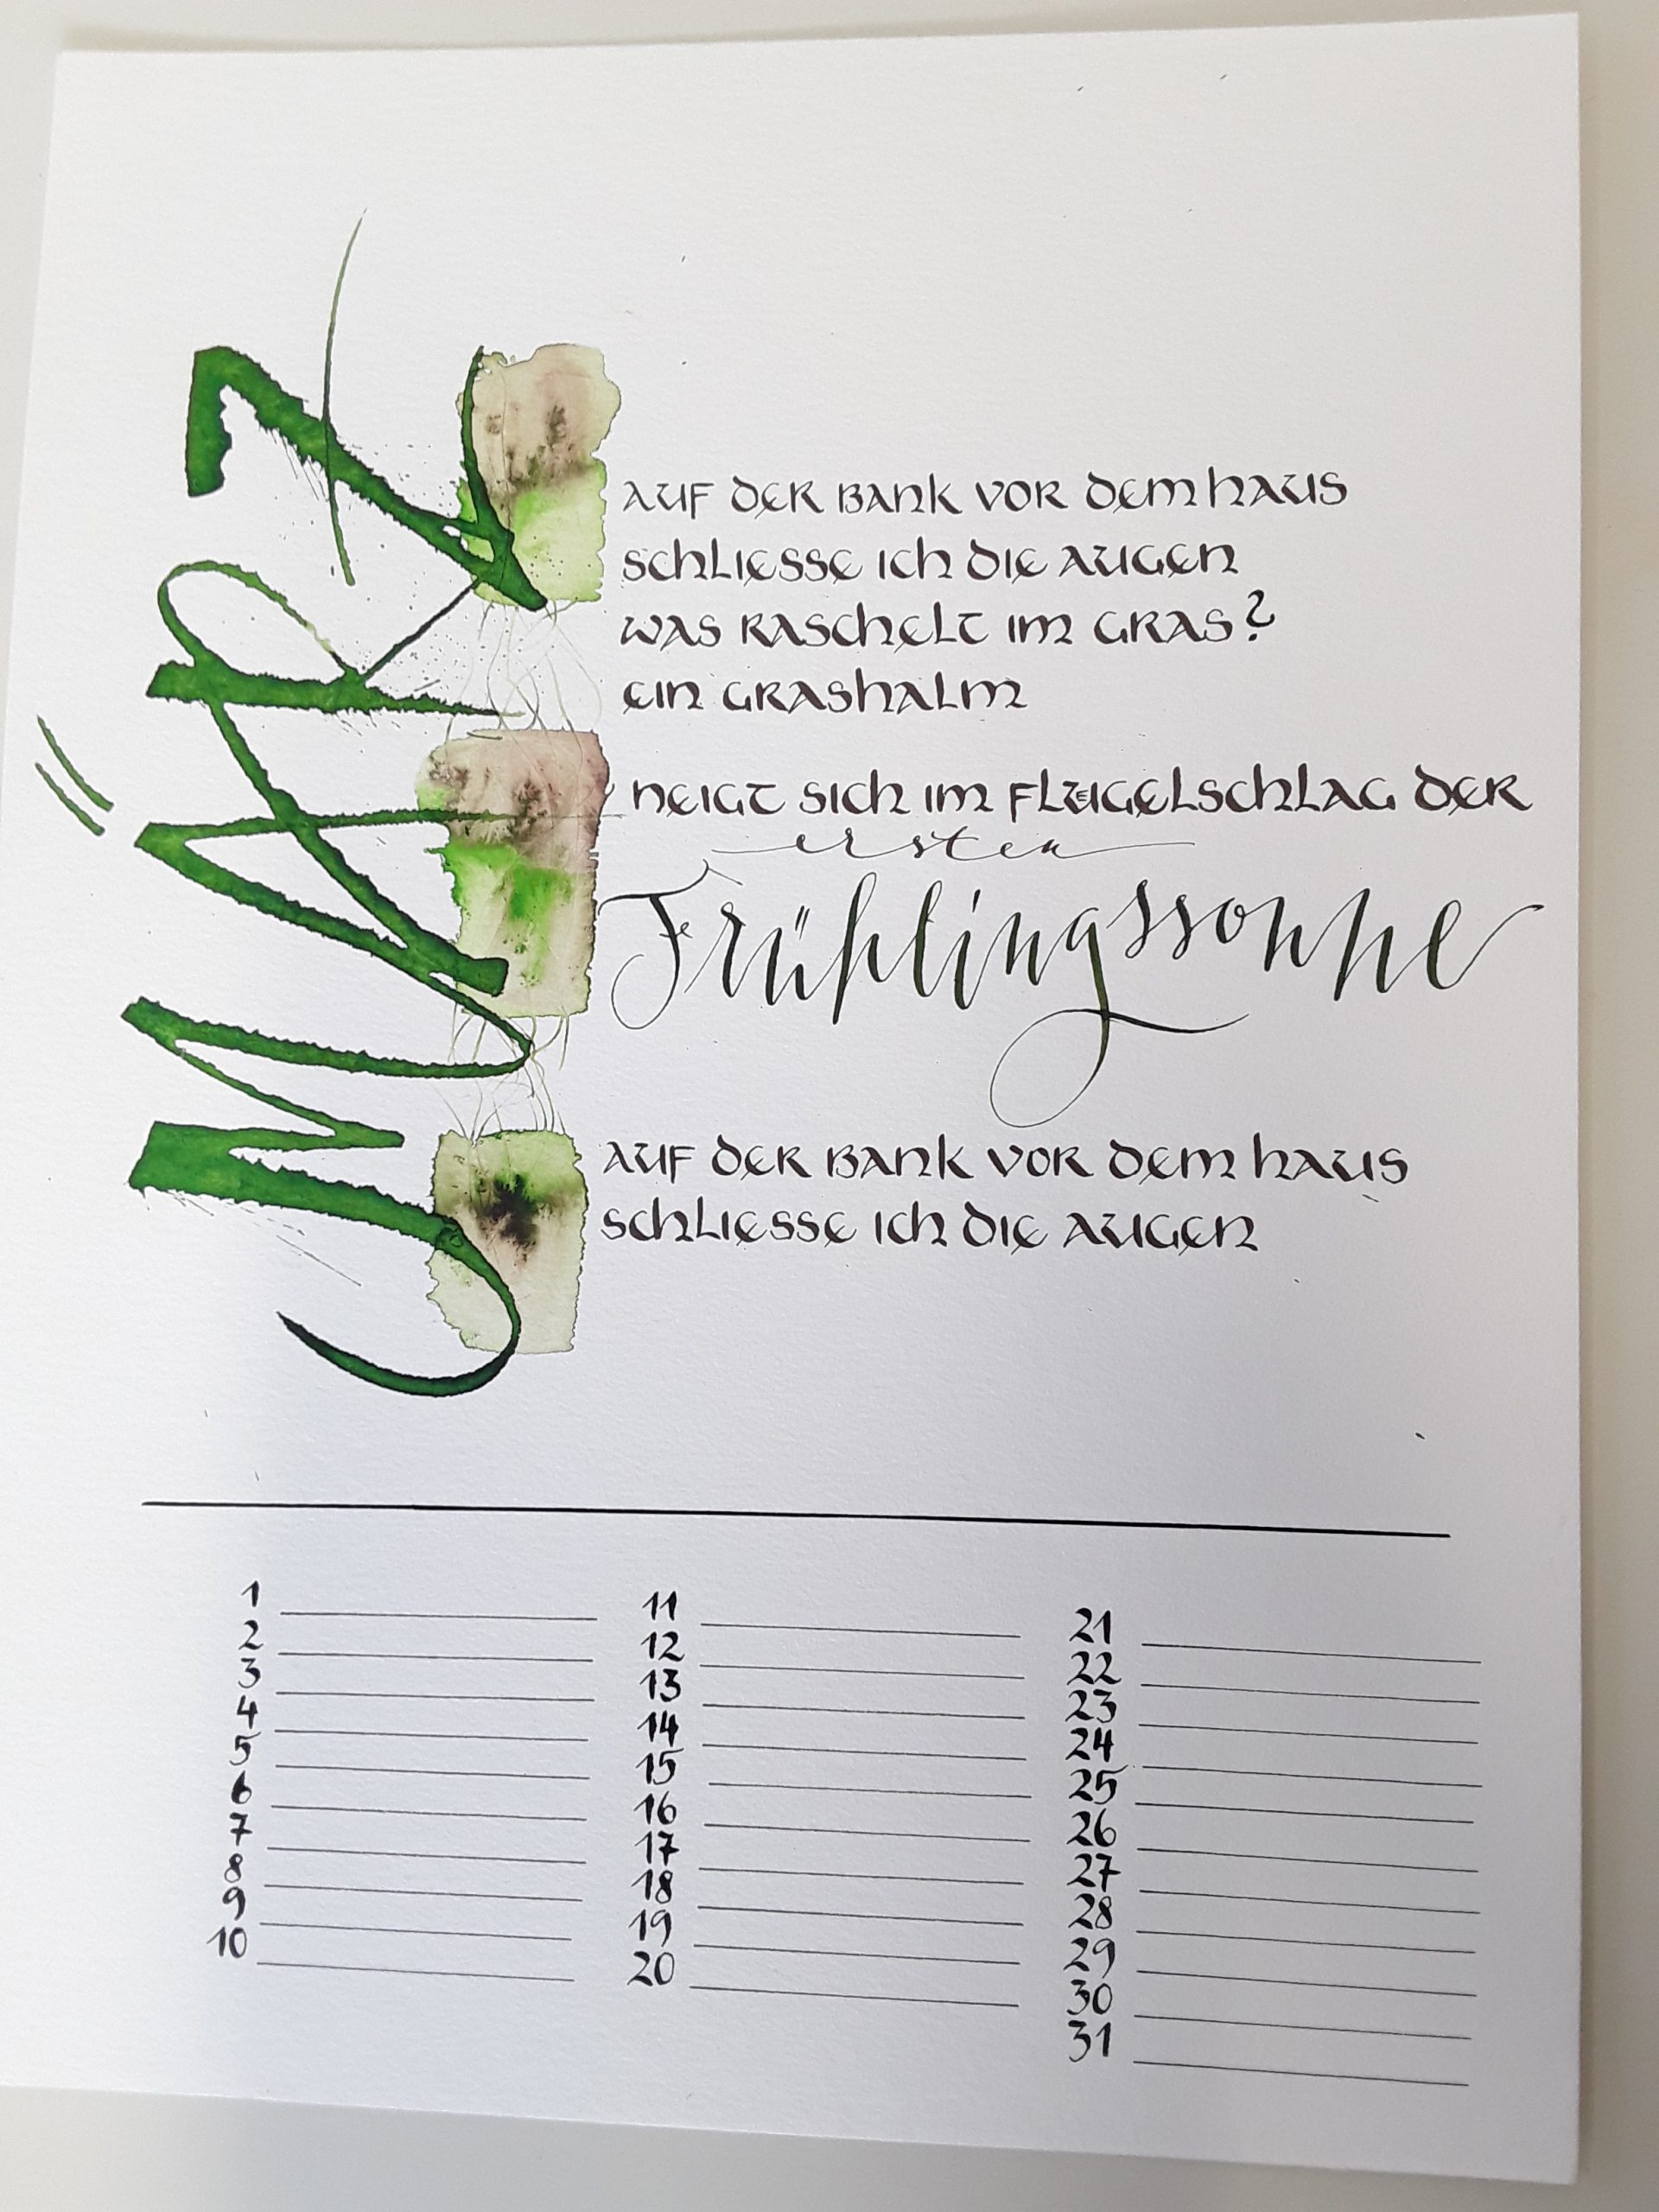 MÄRZ
AUF DER BANK VOR DEM HAUS
SCHLIESSE ICH DIE AUGEN
WAS RASCHELT IM GRAS?
EIN GRASHALM
NEIGT SICH IM FLUEGELSCHLAG DER
ersten
Frühlingssonne
AUF DER BANK VOR DEM HAUS
SCHLIESSE ICH DIE AUGEN
1
2
3
4
5
6
7
8
9
10
11
12
13
14
15
16
17
18
19
20
21
22
23
24
25
26
27
28
29
30
31